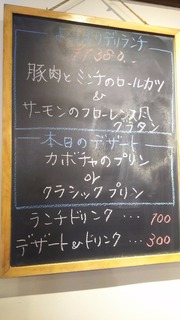 よくばりデリランチ
¥1350.-
豚肉とミンチのロールカツ
&
サーモンのフローレンス風
グラタン
本日のデザート
カボチャのプリン
or
クラシックプリン
ランチドリンク … 100
デザート&ドリンク … 300